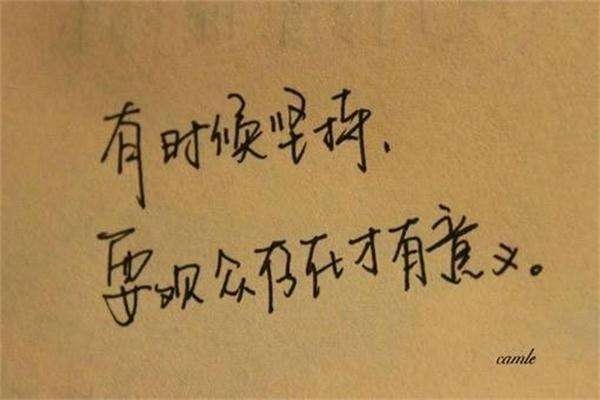 有时候坚持，
要观众存在才有意义。
camle